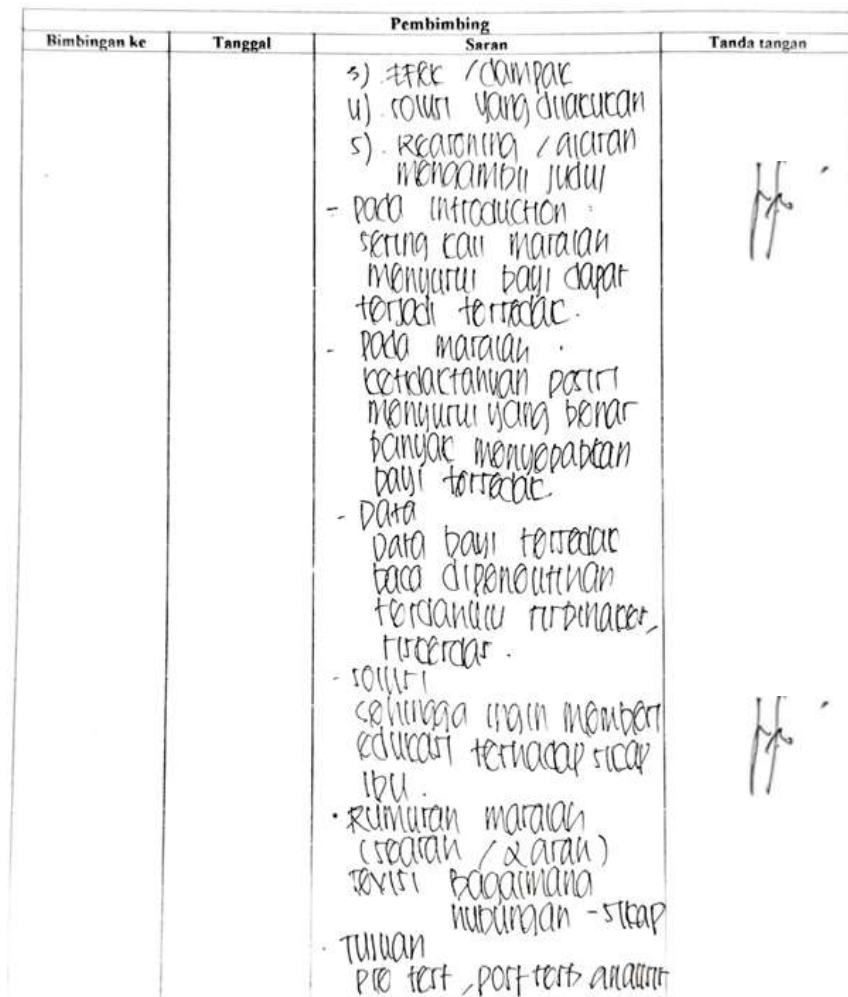 Pembimbing
Bimbingan ke Tanggal Saran Tanda tangan
3) Efek / dampak
4) solusi yang dilakukan
5). Reasoning / alasan
mengambil judul
- pada introduction :
sering kali masalah
menyusui bayi dapat
terjadi tersedak.
- pada masalah .
ketidaktahuan posisi
menyusui yang benar
banyak menyebabkan
bayi tersedak.
- Data
Data bayi tersedak
baca dipenelitihan
terdahulu risbinakes,
riskesdas.
- solusi
sehingga ingin memberi
edukasi terhadap sikap
ibu.
• Rumusan masalah
(searah / 2 arah)
revisi Bagaimana
hubungan - sikap
. Tujuan
pre test, post test, analisis